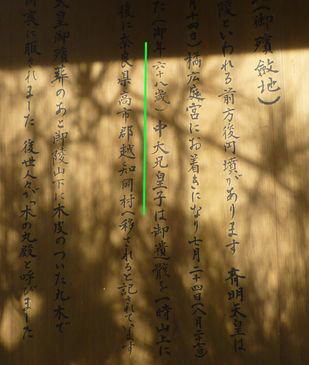 (御殯斂地)
陵といわれる前方後円墳があります 斉明天皇は
月十四日)橘広庭宮にお着きになり七月二十四日(八月二十
た(御年六十八歳)中大兄皇子は御遺骸を一時山上に
後に奈良県高市郡越智岡村へ移されると記されています
天皇御殯葬のあと御陵山下に木皮のついた丸木で
喪に服されました 後世人々が「木の丸殿と呼びました